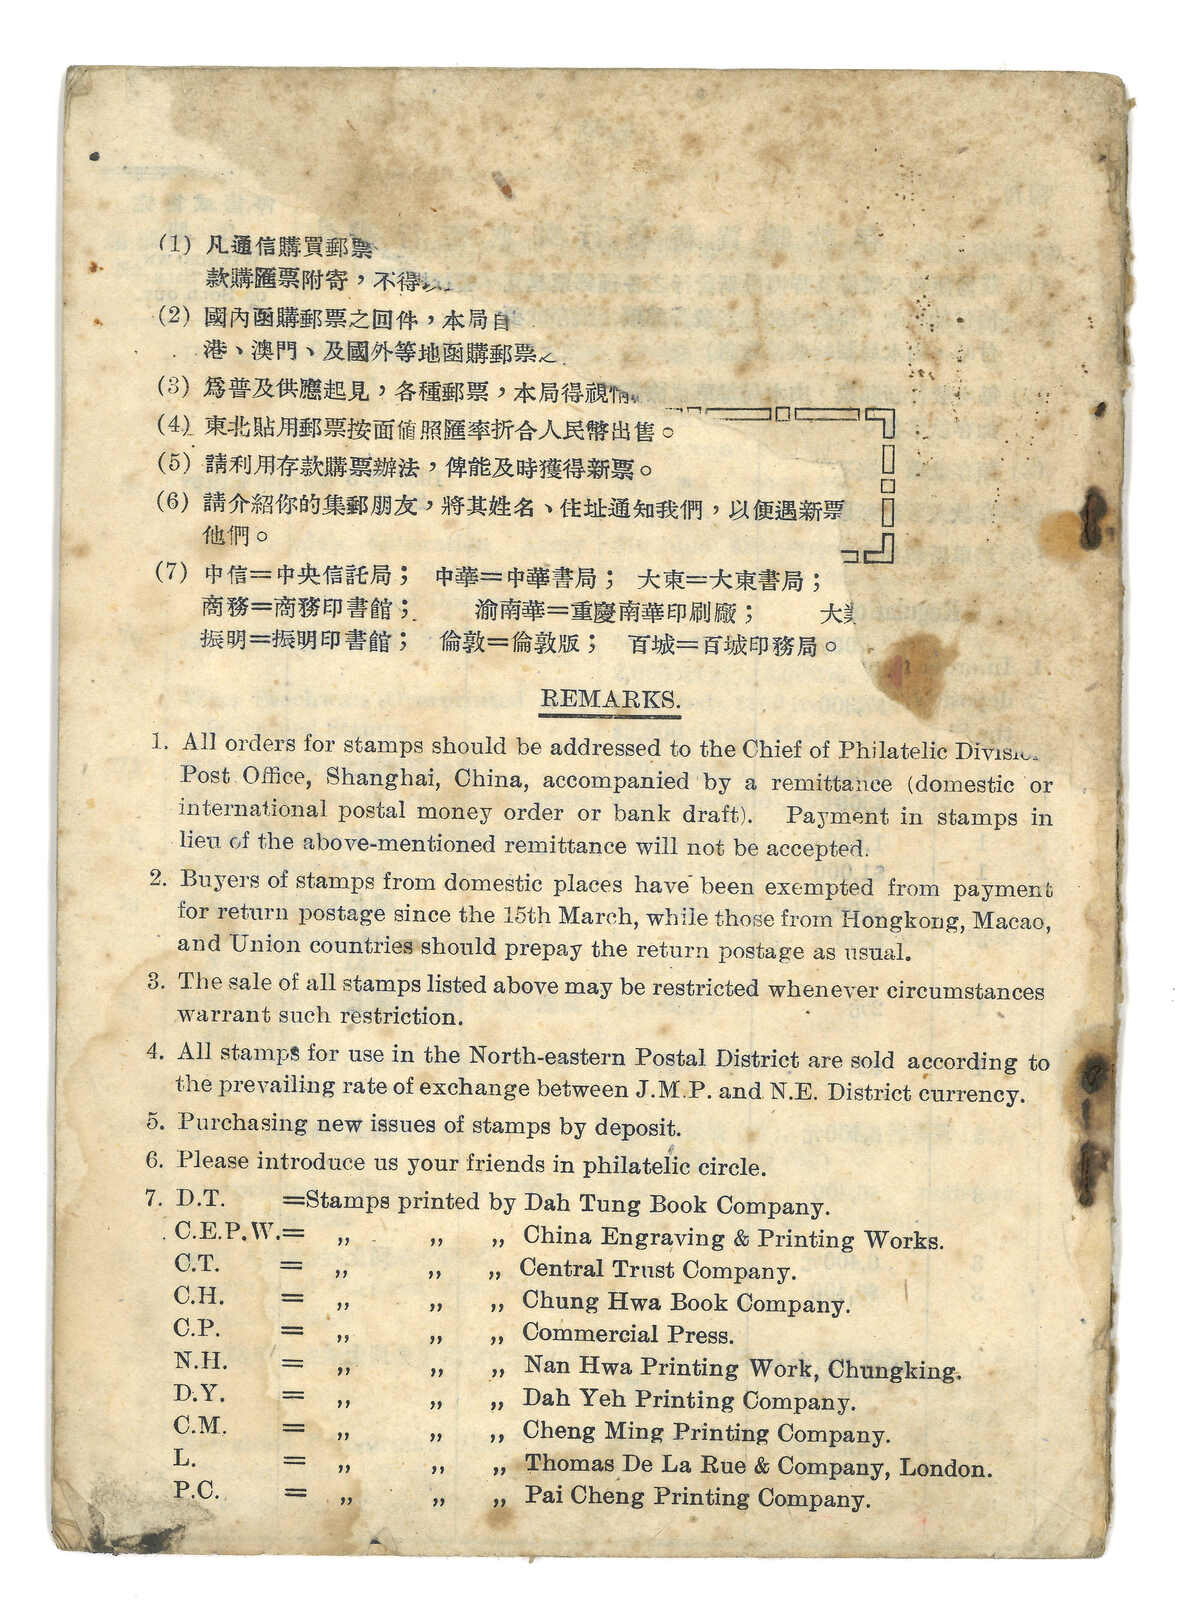 (1) 凡通信購買郵票
款購匯票附寄，不得以
(2) 國內函購郵票之回件，本局自
港、澳門、及國外等地函購郵票之
(3) 爲普及供應起見，各種郵票，本局得視情
(4) 東北貼用郵票按面值照匯率折合人民幣出售。
(5) 請利用存款購票辦法，俾能及時獲得新票。
(6) 請介紹你的集郵朋友，將其姓名、住址通知我們，以便遇新票
他們。
(7) 中信＝中央信託局； 中華＝中華書局； 大東＝大東書局；
商務＝商務印書館； 渝南華＝重慶南華印刷廠； 大業
振明＝振明印書館； 倫敦＝倫敦版； 百城＝百城印務局。
REMARKS.
1. All orders for stamps should be addressed to the Chief of Philatelic Division
Post Office, Shanghai, China, accompanied by a remittance (domestic or
international postal money order or bank draft). Payment in stamps in
lieu of the above-mentioned remittance will not be accepted.
2. Buyers of stamps from domestic places have been exempted from payment
for return postage since the 15th March, while those from Hongkong, Macao,
and Union countries should prepay the return postage as usual.
3. The sale of all stamps listed above may be restricted whenever circumstances
warrant such restriction.
4. All stamps for use in the North-eastern Postal District are sold according to
the prevailing rate of exchange between J.M.P. and N.E. District currency.
5. Purchasing new issues of stamps by deposit.
6. Please introduce us your friends in philatelic circle.
7. D.T. =Stamps printed by Dah Tung Book Company.
C.E.P.W.= „ „ „ China Engraving & Printing Works.
C.T. = „ „ „ Central Trust Company.
C.H. = „ „ „ Chung Hwa Book Company.
C.P. = „ „ „ Commercial Press.
N.H. = „ „ „ Nan Hwa Printing Work, Chungking.
D.Y. = „ „ „ Dah Yeh Printing Company.
C.M. = „ „ „ Cheng Ming Printing Company.
L. = „ „ „ Thomas De La Rue & Company, London.
P.C. = „ „ „ Pai Cheng Printing Company.